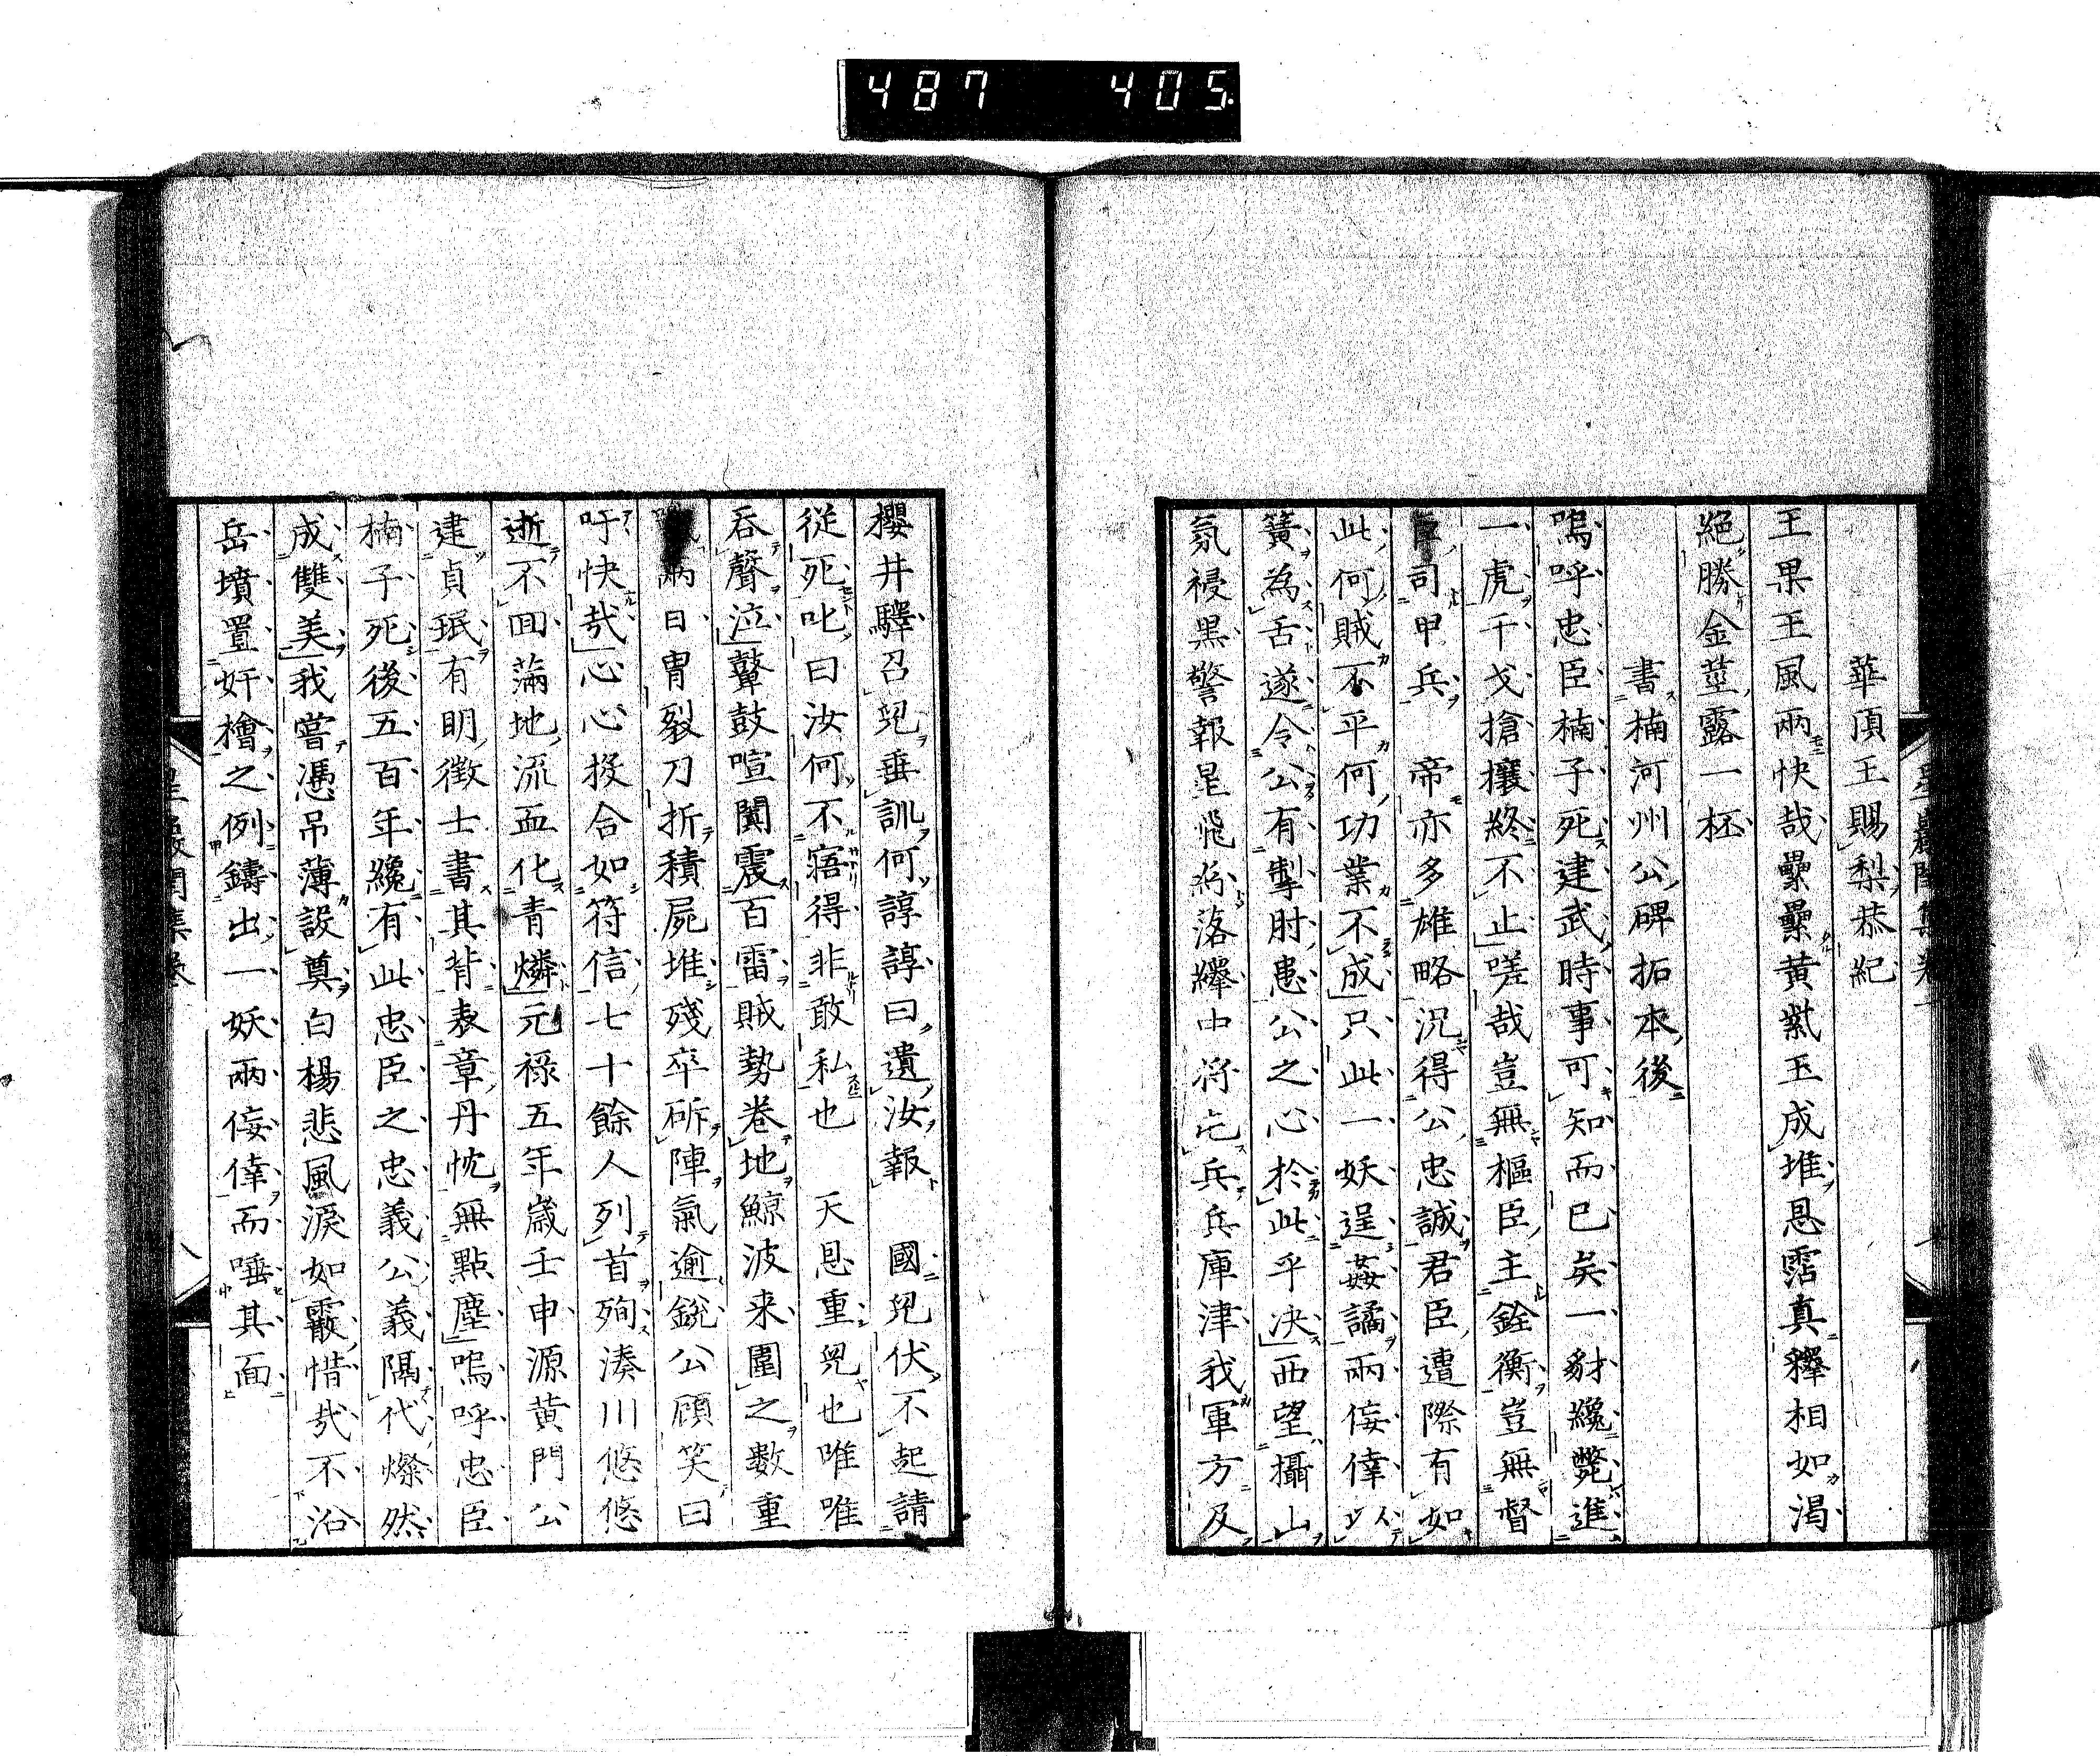 487 405
華頂王賜梨恭紀
王果王風兩快哉纍纍黃紫玉成堆恩霑真釋相如渴
絕勝金莖露一杯
書楠河州公碑拓本後
嗚呼忠臣楠子死建武時事可知而已矣一豺纔斃進
一虎干戈搶攘終不止嗟哉豈無樞臣主銓衡豈無督
司甲兵 帝亦多雄略況得公忠誠君臣遭際有如
此何賊不平何功業不成只此一妖逞姦譎兩侫倖以
簧為舌遂令公有掣肘患公之心於此乎决西望攝山
氛祲黑警報星飛落纆中將屯兵兵庫津我軍方及
櫻井驛召兒垂訓何諄諄曰遺汝報 國兒伏不起請
從死叱曰汝何不寤得非敢私也 天恩重兒也唯唯
吞聲泣鼙鼓喧闐震百雷賊勢卷地鯨波来圍之數重
兩日胄裂刀折積屍堆殘卒斫陣氣逾銳公顧笑曰
吁快哉心心投合如符信七十餘人列首殉湊川悠悠
逝不回滿地流血化青燐元祿五年歲壬申源黃門公
建貞珉有明徵士書其背表章丹忱無點塵嗚呼忠臣
楠子死後五百年纔有此忠臣之忠義公義隔代燦然
成雙美我嘗憑吊薄設奠白楊悲風淚如霰惜哉不沿
岳墳置奸檜之例鑄出一妖兩侫倖而唾其面
八